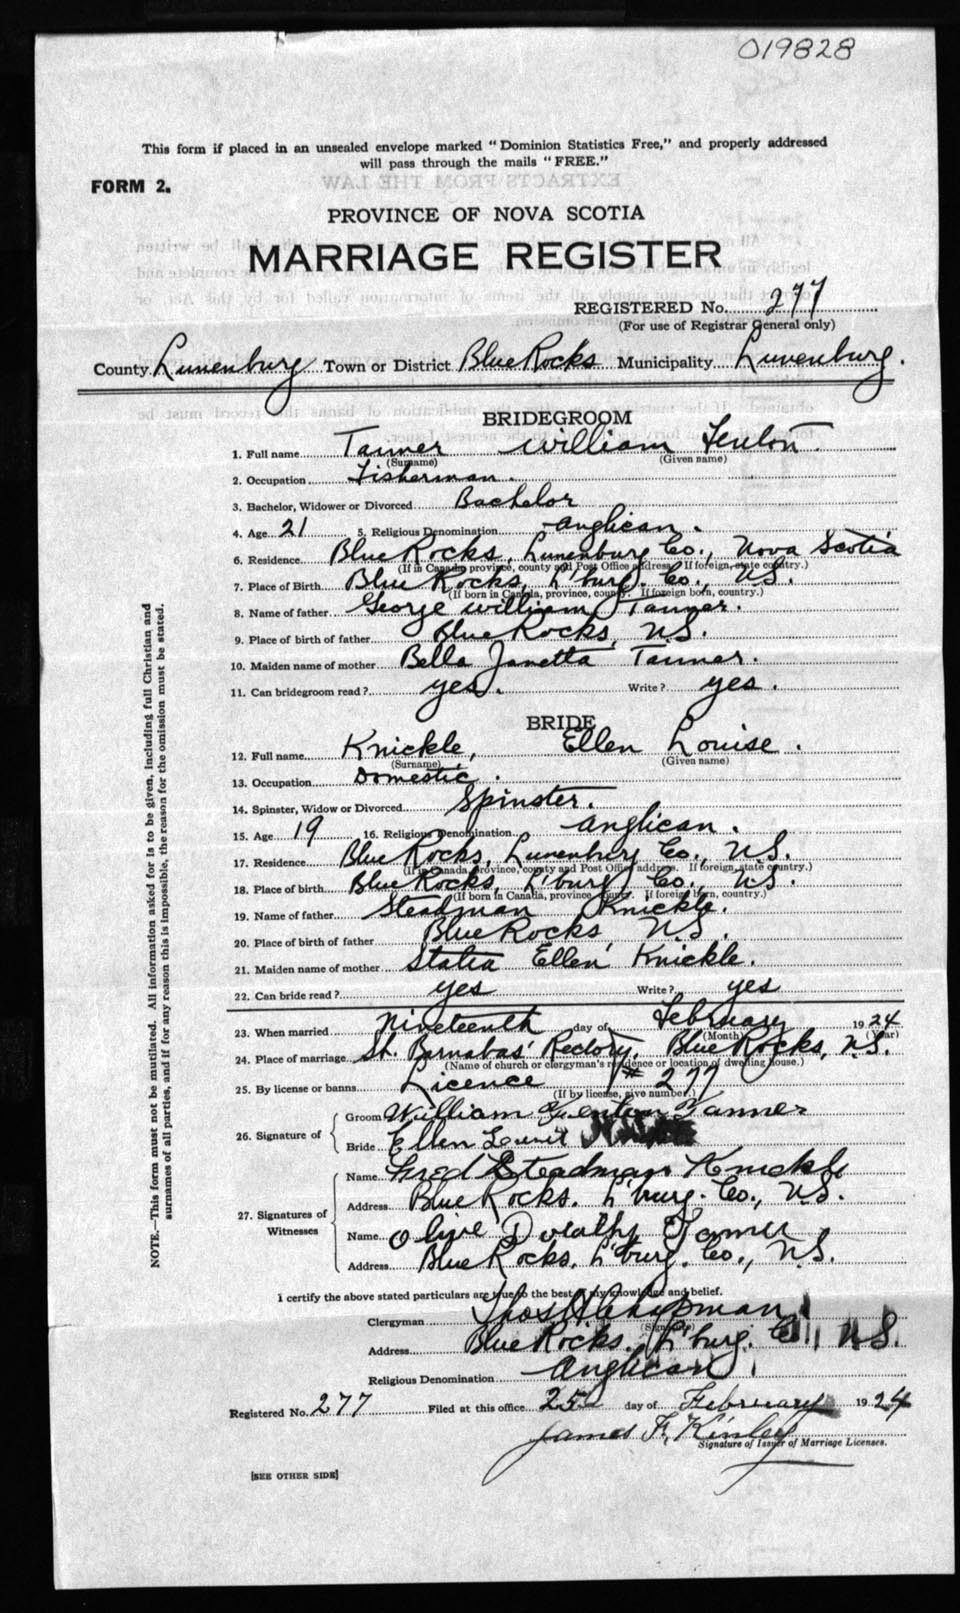 019828
This form if placed in an unsealed envelope marked "Dominion Statistics Free," and properly addressed
will pass through the mails "FREE."
FORM 2.
PROVINCE OF NOVA SCOTIA
MARRIAGE REGISTER
REGISTERED No. 277
(For use of Registrar General only)
County Lunenburg Town or District Blue Rocks Municipality Lunenburg.
BRIDEGROOM
1. Full name Tanner William Fenton
(Surname) (Given name)
2. Occupation Fisherman.
3. Bachelor, Widower or Divorced Bachelor
4. Age 21 5. Religious Denomination Anglican.
6. Residence Blue Rocks, Lunenburg Co., Nova Scotia
(If in Canada province, county and Post Office address. If foreign, state country.)
7. Place of Birth Blue Rocks, L'burg. Co., N.S.
(If born in Canada, province, county. If foreign born, country.)
8. Name of father George William Tanner.
9. Place of birth of father Blue Rocks, N.S.
10. Maiden name of mother Bella Janetta Tanner.
11. Can bridegroom read? yes. Write? yes.
BRIDE
12. Full name Knickle, Ellen Louise.
(Surname) (Given name)
13. Occupation Domestic.
14. Spinster, Widow or Divorced Spinster.
15. Age 19 16. Religious Denomination Anglican.
17. Residence Blue Rocks, Lunenburg Co., N.S.
(If in Canada, province, county and Post Office address. If foreign, state country.)
18. Place of birth Blue Rocks, L'burg Co., N.S.
(If born in Canada, province, county. If foreign born, country.)
19. Name of father Steadman Knickle.
20. Place of birth of father Blue Rocks N.S.
21. Maiden name of mother Statia Ellen Knickle.
22. Can bride read? yes Write? yes
23. When married Nineteenth day of February 1924
(Month) (Year)
24. Place of marriage St. Barnabas' Rectory, Blue Rocks, N.S.
(Name of church or clergyman's residence or location of dwelling house.)
25. By license or banns Licence # 277
(If by license, give number.)
26. Signature of
Groom William Fenton Tanner
Bride Ellen
27. Signatures of Witnesses
Name Fred Steadman Knickle
Address Blue Rocks. L'burg. Co., N.S.
Name Olive Dorathy Tanner
Address Blue Rocks. L'burg. Co., N.S.
I certify the above stated particulars are true to the best of my knowledge and belief.
Clergyman Thos H Chapman
(Signature)
Address Blue Rocks. L'burg. Co. N.S.
Religious Denomination Anglican
Registered No. 277 Filed at this office 25 day of February 1924
James F. Kinley
Signature of Issuer of Marriage Licenses.
[SEE OTHER SIDE]
NOTE.—This form must not be mutilated. All information asked for is to be given, including full Christian and
surnames of all parties, and if for any reason this is impossible, the reason for the omission must be stated.